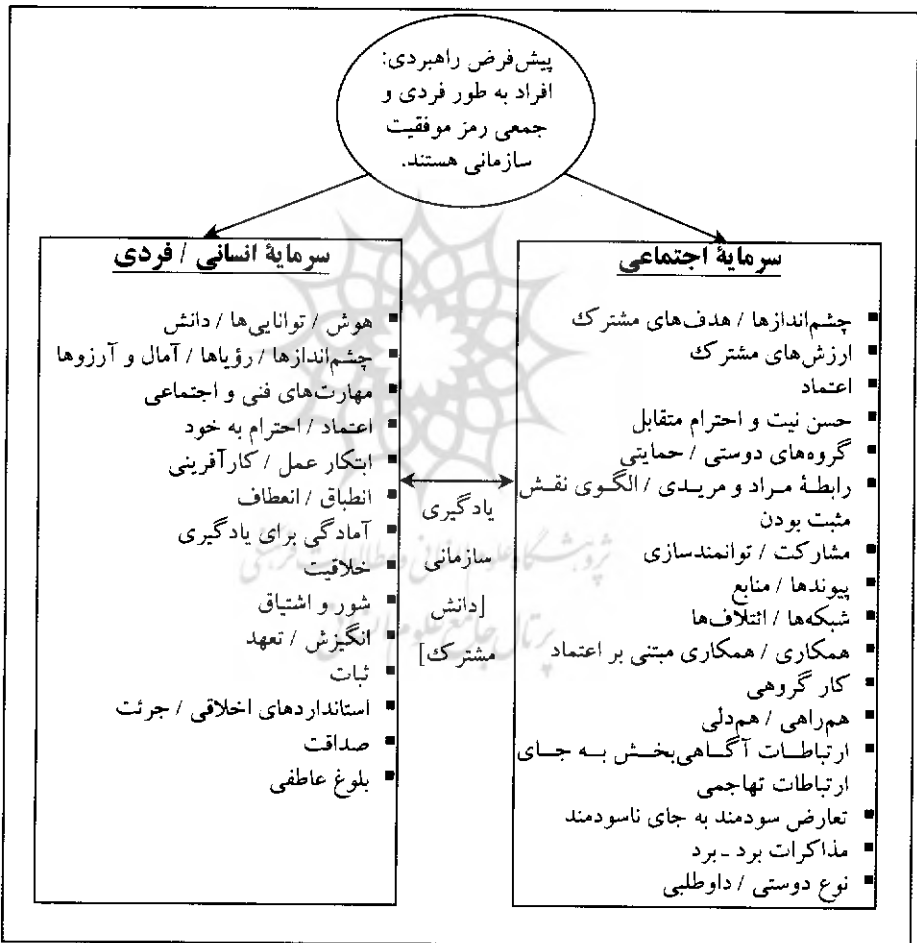 پیش‌فرض راهبردی:
افراد به طور فردی و
جمعی رمز موفقیت
سازمانی هستند.
سرمایهٔ اجتماعی
▪ چشم‌اندازها / هدف‌های مشترک
▪ ارزش‌های مشترک
▪ اعتماد
▪ حسن نیت و احترام متقابل
▪ گروه‌های دوستی / حمایتی
▪ رابطهٔ مراد و مریدی / الگوی نقش
مثبت بودن
▪ مشارکت / توانمندسازی
▪ پیوندها / منابع
▪ شبکه‌ها / ائتلاف‌ها
▪ همکاری / همکاری مبتنی بر اعتماد
▪ کار گروهی
▪ هم‌راهی / هم‌دلی
▪ ارتباطات آگاهی‌بخش به جای
ارتباطات تهاجمی
▪ تعارض سودمند به جای ناسودمند
▪ مذاکرات برد ـ برد
▪ نوع دوستی / داوطلبی
یادگیری
سازمانی
[دانش
مشترک]
سرمایهٔ انسانی / فردی
▪ هوش / توانایی‌ها / دانش
▪ چشم‌اندازها / رؤیاها / آمال و آرزوها
▪ مهارت‌های فنی و اجتماعی
▪ اعتماد / احترام به خود
▪ ابتکار عمل / کارآفرینی
▪ انطباق / انعطاف
▪ آمادگی برای یادگیری
▪ خلاقیت
▪ شور و اشتیاق
▪ انگیزش / تعهد
▪ ثبات
▪ استانداردهای اخلاقی / جرئت
▪ صداقت
▪ بلوغ عاطفی
پژوهشگاه علوم انسانی و مطالعات فرهنگی
پرتال جامع علوم انسانی